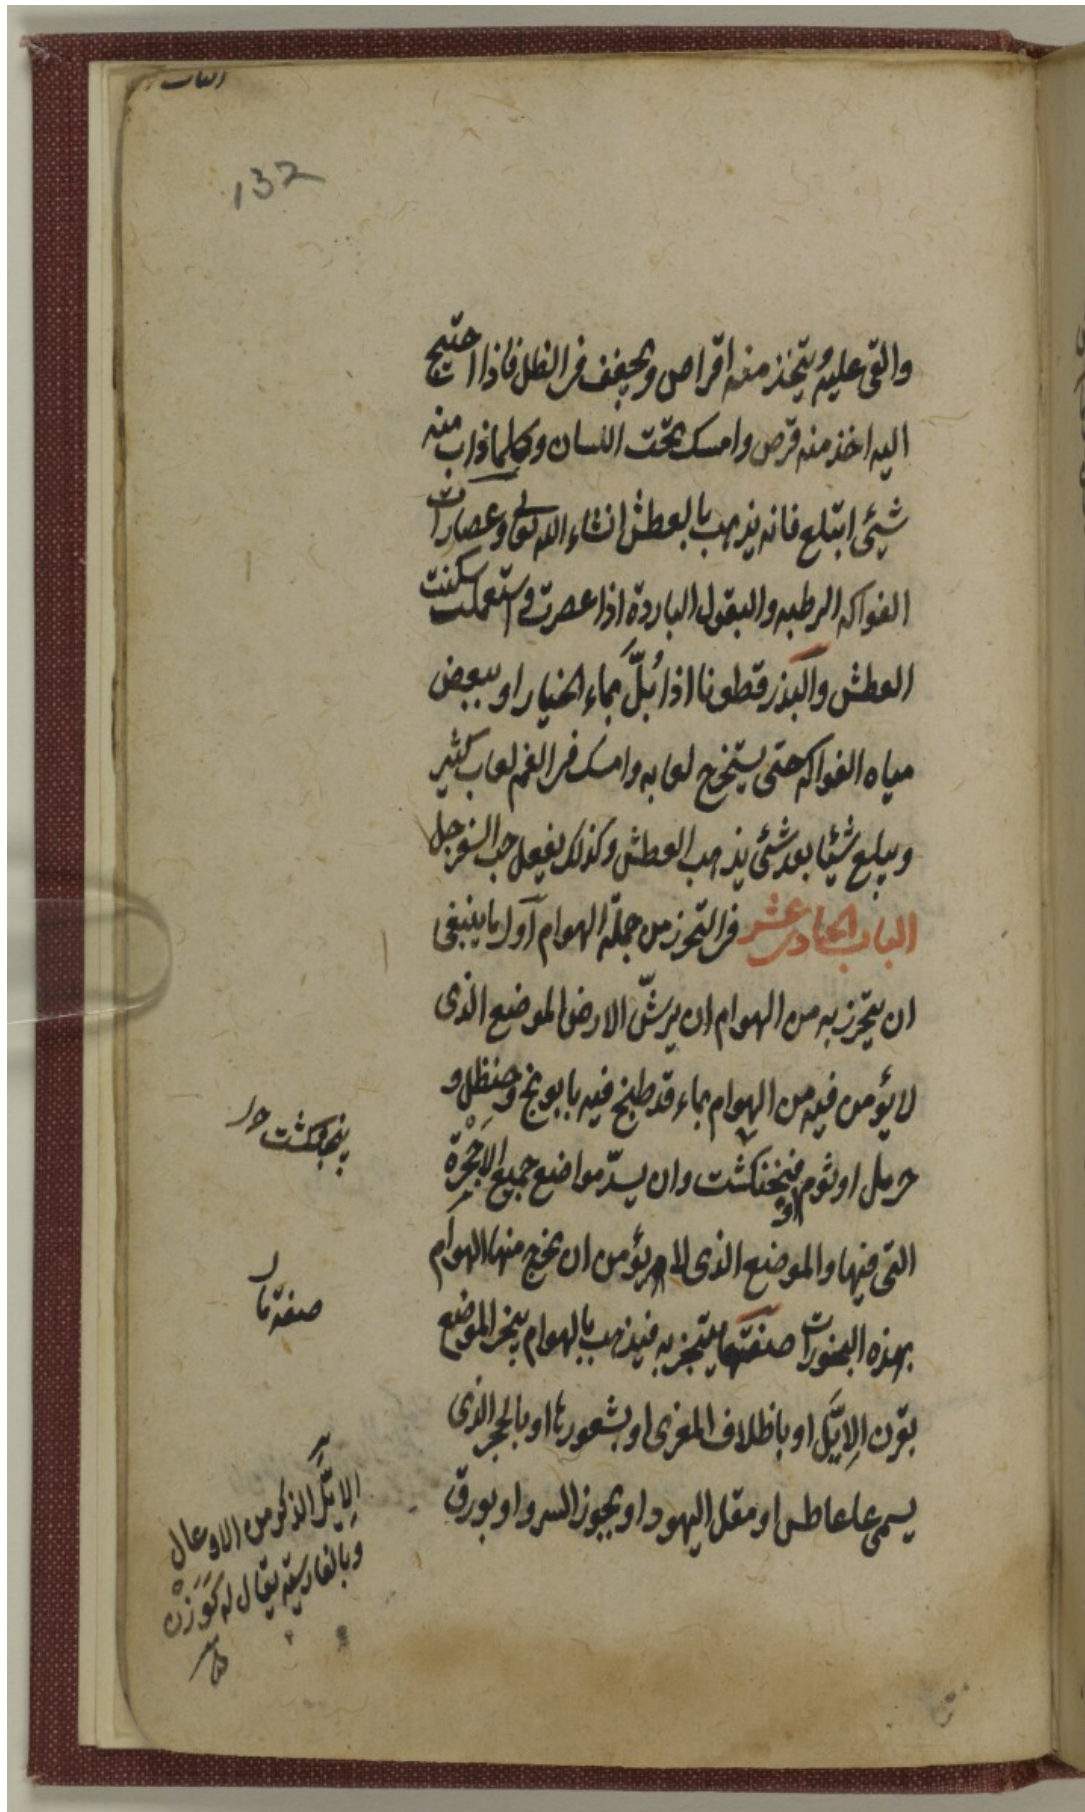 132
والقى عليه ويتخذ منه اقراص ويجفف فى الظل فاذا احتيج
اليه اخذ منه قرص وامسك تحت اللسان وكلما ذاب منه
شيئى ابتلع فانه يذهب بالعطش انشاء الله تعالى وعصارات
الفواكه الرطبه والبقول الباردة اذا عصرت واستعملت سكنت
العطش والبذر قطونا اذا بُلَّ بماء الخيار او ببعض
مياه الفواكه حتى يستخرج لعابه وامسك فى الفم لعاب كثير
ويبلع شيئا بعد شئى يذهب العطش وكذلك يفعل حب السفرجل
الباب الحادى عشر فى التحرز من جملة الهوام اول ما ينبغى
ان يتحرز به من الهوام ان يرشّ الارض الموضع الذى
لا يؤمن فيه من الهوام بماء قد طبخ فيه بابونج وحنظل و
حرمل او ثوم او فنجنكشت وان يسدّ مواضع جميع الاجحرة
التى فيها والموضع الذى لا يؤمن ان يخرج منها الهوام
بهذه البخورات صفتها يتبخر به فيذهب بالهوام يبخر الموضع
بقرن الايّل او باظلاف المعزى او بشعورها او بالحجر الذى
يسمى عاعاطس او مقل اليهود او بجوز السرو او بورق
پنجنكشت
صفة ما
الايّل الذكر من الاوعال
وبالفارسية يقال له كوزن